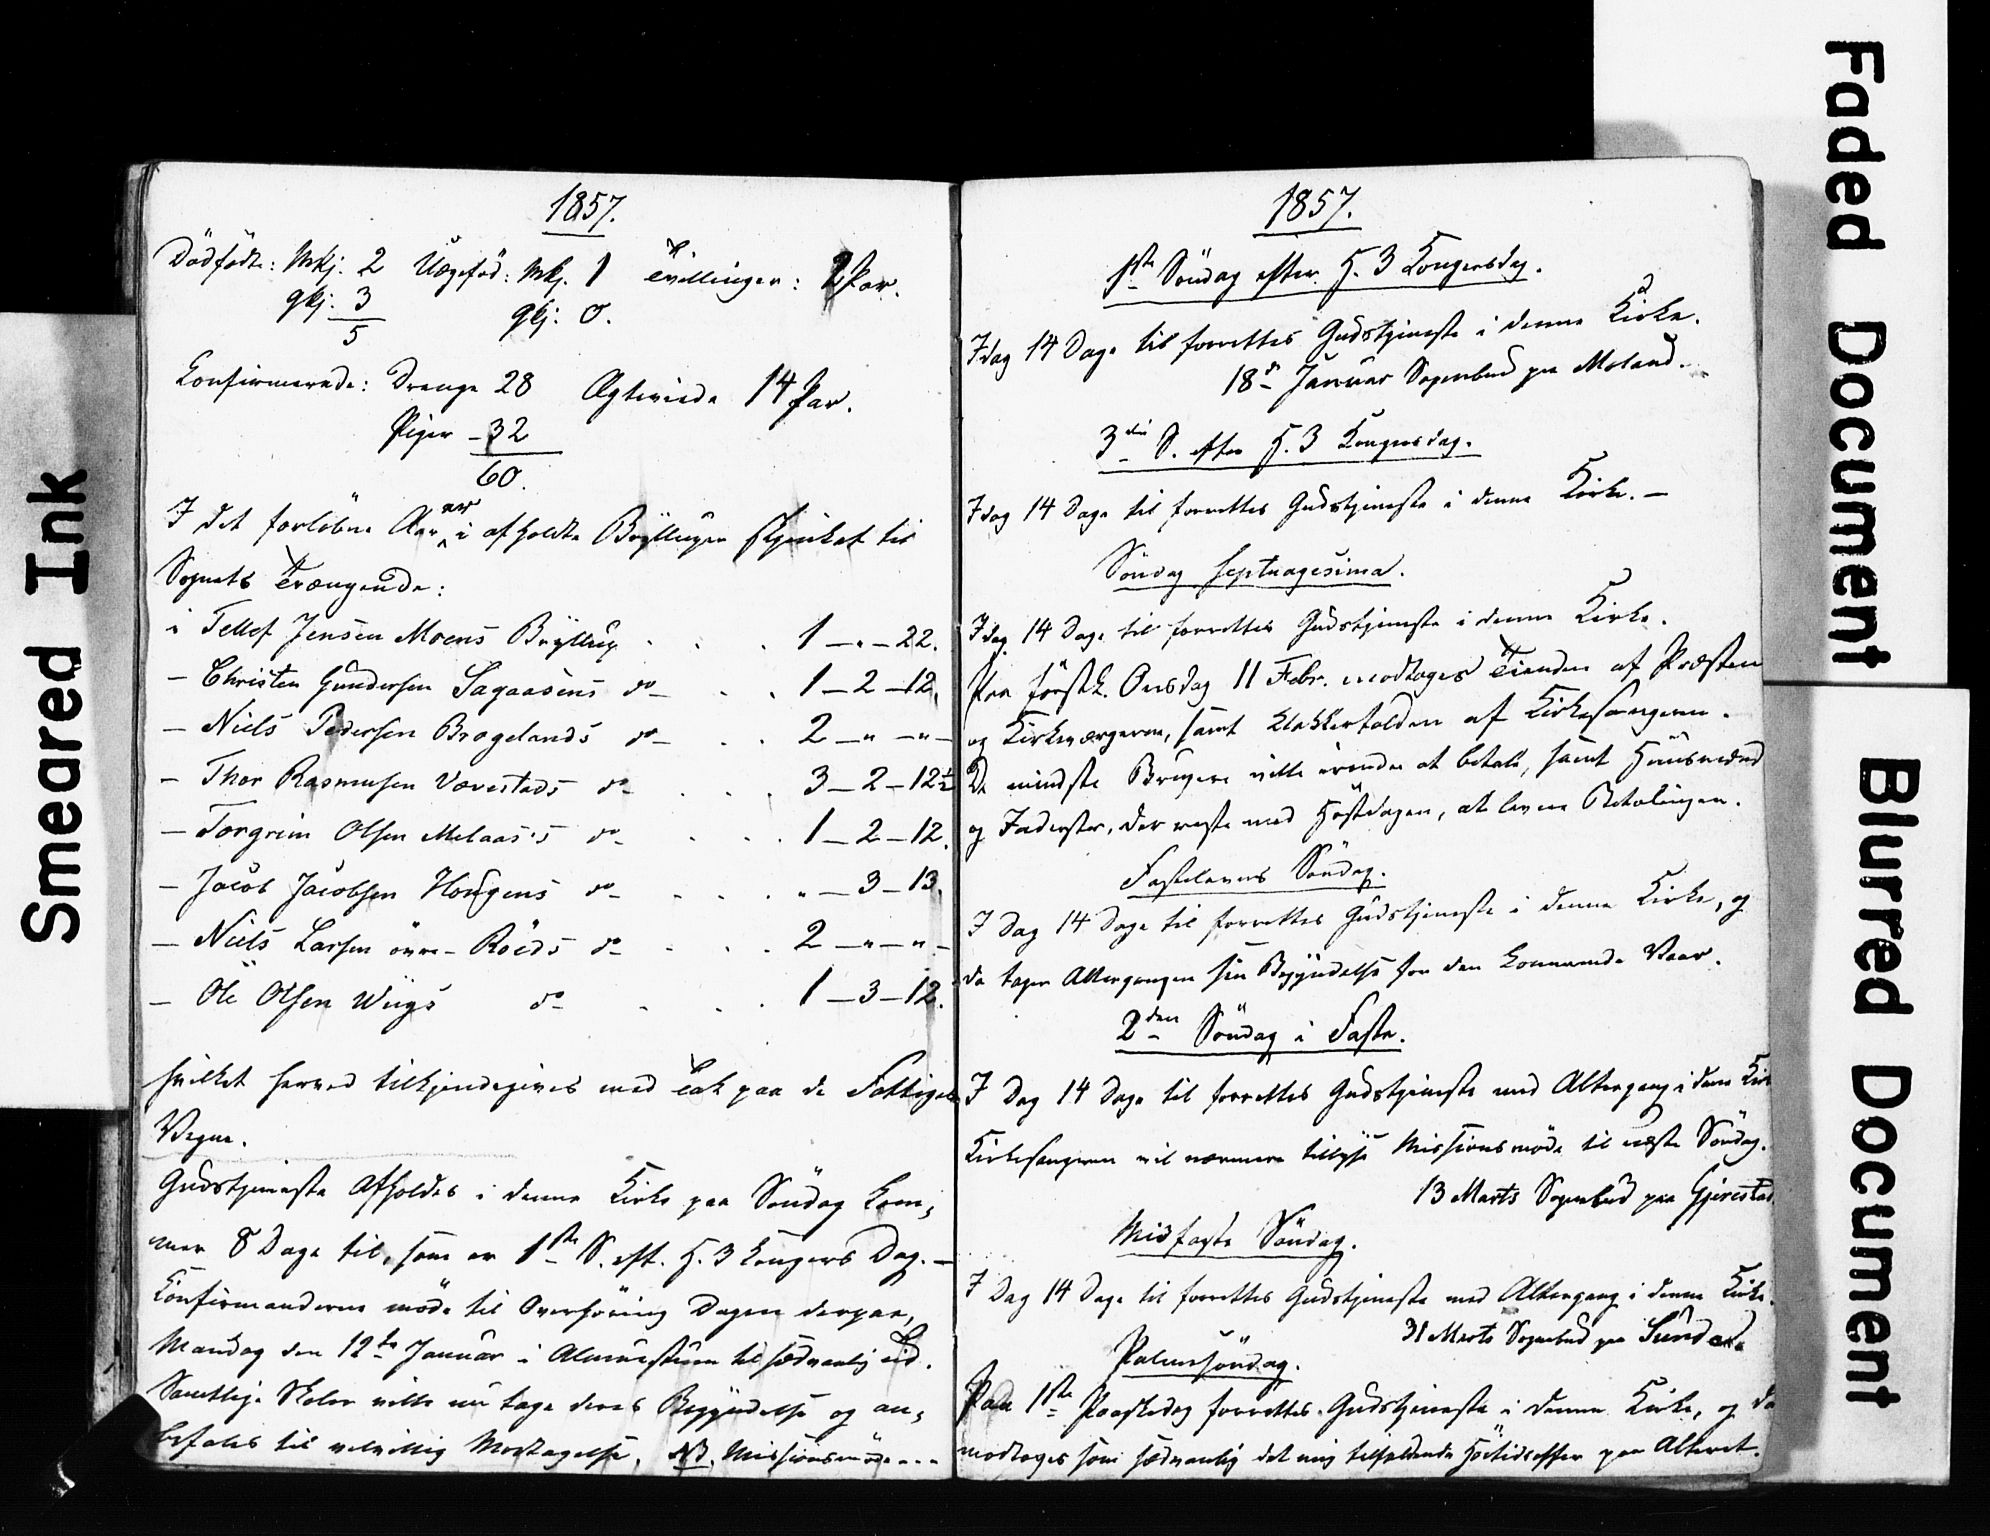 Smeared Ink
Faded Document
Blurred Document
1857.
Dödfödte: Mkj. 2 Uægtefød: Mkj. 1 Tvillinger: 2 Par.
Qkj: 3 Qkj: 0.
5
Confirmerede: Drenge 28 Ægteviede 14 Par.
Piger – 32
60.
I det forløbne Aar er i afholdte Bryllupper skjenket til
Sognets Trængende:
i Tellef Jensen Moens Bryllup . . . 1 – „ – 22.
– Christen Gundersen Lagaasens do . . 1 – 2 – 12.
– Niels Pedersen Brogelands do . . 2 – „ – „ –
– Thor Rasmusen Vævestads do . . . 3 – 2 – 12½
– Torgrim Olsen Melaas's do . . . 1 – 2 – 12.
– Jacob Jacobsen Hougens do . . . „ – 3 – 13.
– Niels Larsen övre – Röeds do . . . 2 – „ – „ –
– Ole Olsen Wiigs do . . . 1 – 3 – 12.
hvilket herved tilkjendegives med Tak paa de Fattiges
Vegne.
Gudstjeneste Afholdes i denne Kirke paa Søndag kom-
mer 8 Dage til, som er 1ste S. eft. H. 3 Kongers Dag. –
Confirmanderne møde til Overhøring Dagen derpaa,
Mandag den 12te Januar i Almuestuen til sædvanlig Tid.
Samtlige Skoler ville nu tage deres Begyndelse og an-
befales til velvillig Modtagelse. NB. Missionsmøde...
1857.
1ste Söndag efter H. 3 Kongersdag.
Idag 14 Dage til forrettes Gudstjeneste i denne Kirke.
18de Januar Sognebud paa Moland.
3die S. efter H. 3 Kongersdag.
Idag 14 Dage til forrettes Gudstjeneste i denne Kirke. –
Söndag Septuagesima.
Idag 14 Dage til forrettes Gudstjeneste i denne Kirke.
Paa förstk. Onsdag 11 Febr. modtages Tienden af Præsten
og Kirkeværgerne, samt Klokkertolden af Kirkesangeren.
De mindste Brugere ville erindre at betale, samt Huusmænd
og Inderster, der reste med Høstdagen, at levere Betalingen.
Fastelavns Söndag.
I Dag 14 Dage til forrettes Gudstjeneste i denne Kirke, og
da tager Altergangen sin Begyndelse for den kommende Vaar.
2den Söndag i Faste.
I Dag 14 Dage til forrettes Gudstjeneste med Altergang i denne Kirk
Kirkesangeren vil nærmere tillyse Missionsmøde til næste Söndag.
13 Marts Sognebud paa Gjerestad
Midfaste Söndag.
I Dag 14 Dage til forrettes Gudstjeneste med Altergang i denne Kirke.
31 Marts Sognebud paa Sunde.
Palmesöndag.
Paa 1ste Paaskedag forrettes Gudstjeneste i denne Kirke, og da
modtages som sædvanlig det mig tilfaldende Höitidsoffer paa Alteret.